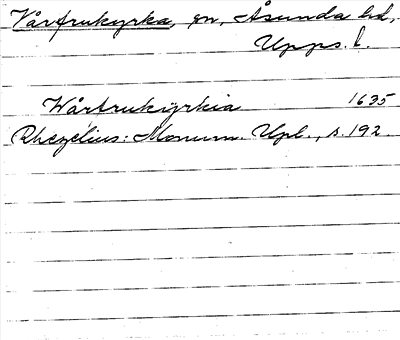 Vårfrukyrka, sn, Åsunda hd,
Upps. l.
Wårfrukyrkia 1635
Rhezelius: Monum. Upl., s. 192